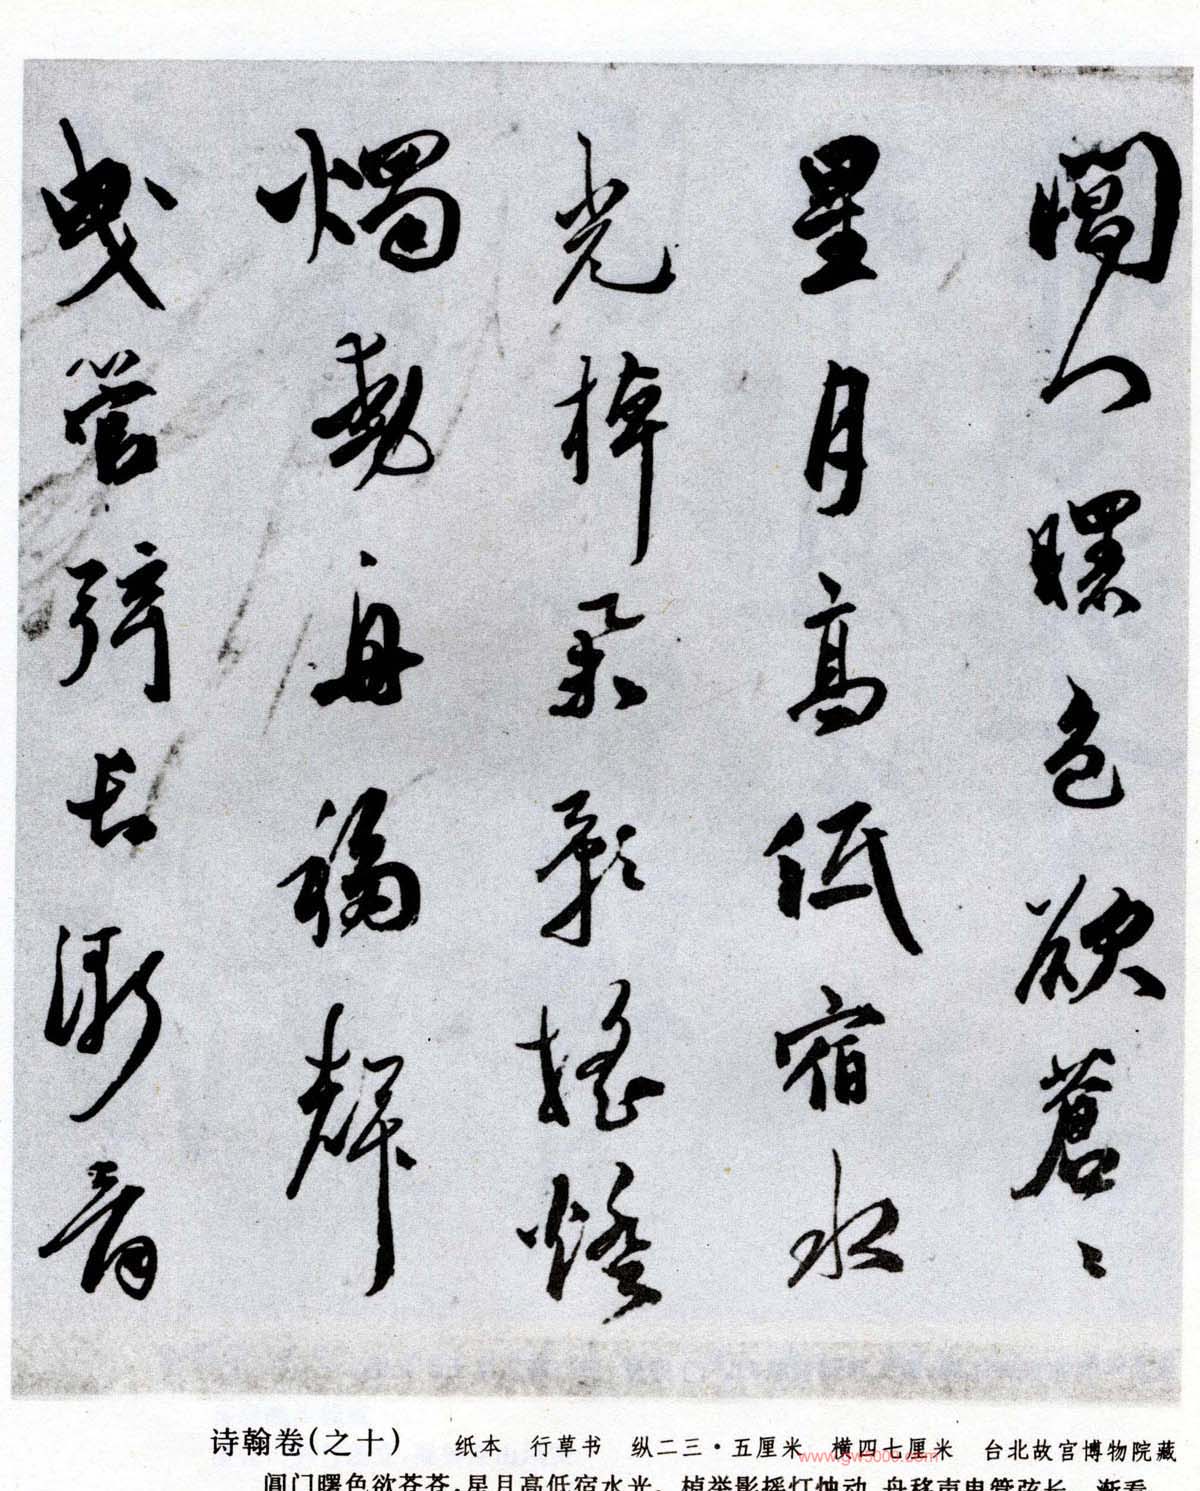 閶門曙色欲蒼〻
星月高低宿水
光棹舉影搖燈
燭動舟移聲
曳管弦長漸看
诗翰卷(之十) 纸本 行草书 纵二三·五厘米 横四七厘米 台北故宫博物院藏
阊门曙色欲苍苍,星月高低宿水光。棹举影摇灯烛动,舟移声曳管弦长。渐看
www.gw5000.com